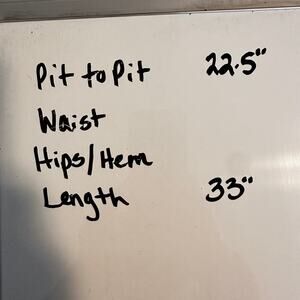 Pit to Pit 22.5"
Waist
Hips/Hem
Length 33"